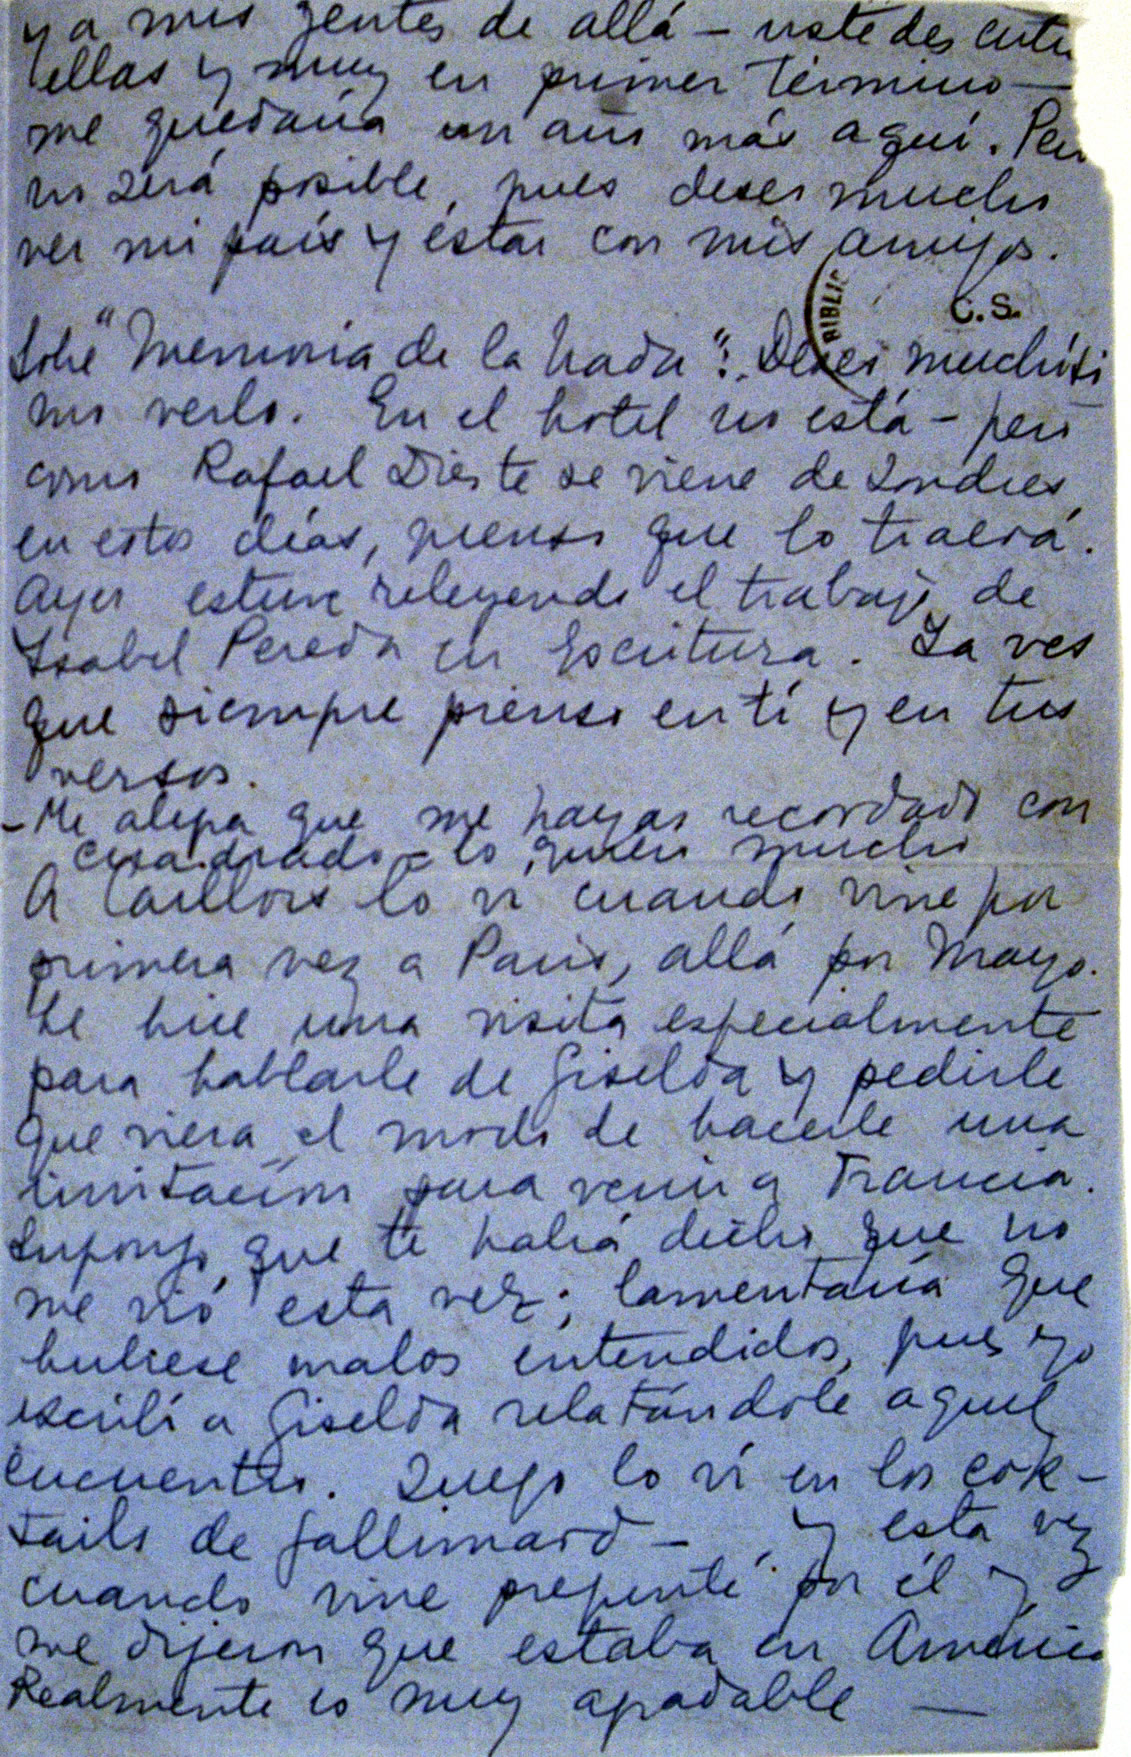 y a mis gentes de allá – ustedes entre
ellas y muy en primer término –
me quedaría un año más aquí. Pero
no será posible, pues deseo mucho
ver mi país y estar con mis amigos.
BIBLIO
C.S.
Sobre "Memoria de la Nada": Deseo muchísi
mo verlo. En el hotel no está – pero
como Rafael Dieste se viene de Londres
en estos días, pienso que lo traerá.
Ayer estuve releyendo el trabajo de
Isabel Pereda en Escritura. Ya ves
que siempre pienso en tí y en tus
versos.
– Me alegra que me hayas recordado con
Cuadrado – lo quiero mucho
A Caillois lo ví cuando vine por
primera vez a París, allá por Mayo.
Le hice una visita especialmente
para hablarle de Giselda y pedirle
que viera el modo de hacerle una
invitación para venir a Francia.
Supongo que te habrá dicho que no
me vió esta vez; lamentaría que
hubiese malos entendidos, pues yo
escribí a Giselda relatándole aquel
encuentro. Luego lo ví en los cok-
tails de Gallimard – y esta vez
cuando vine pregunté por él y
me dijeron que estaba en América
Realmente es muy agradable —